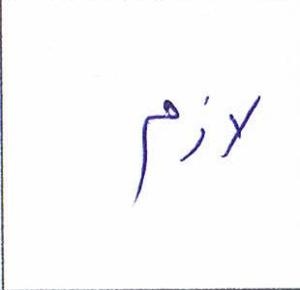 لازم